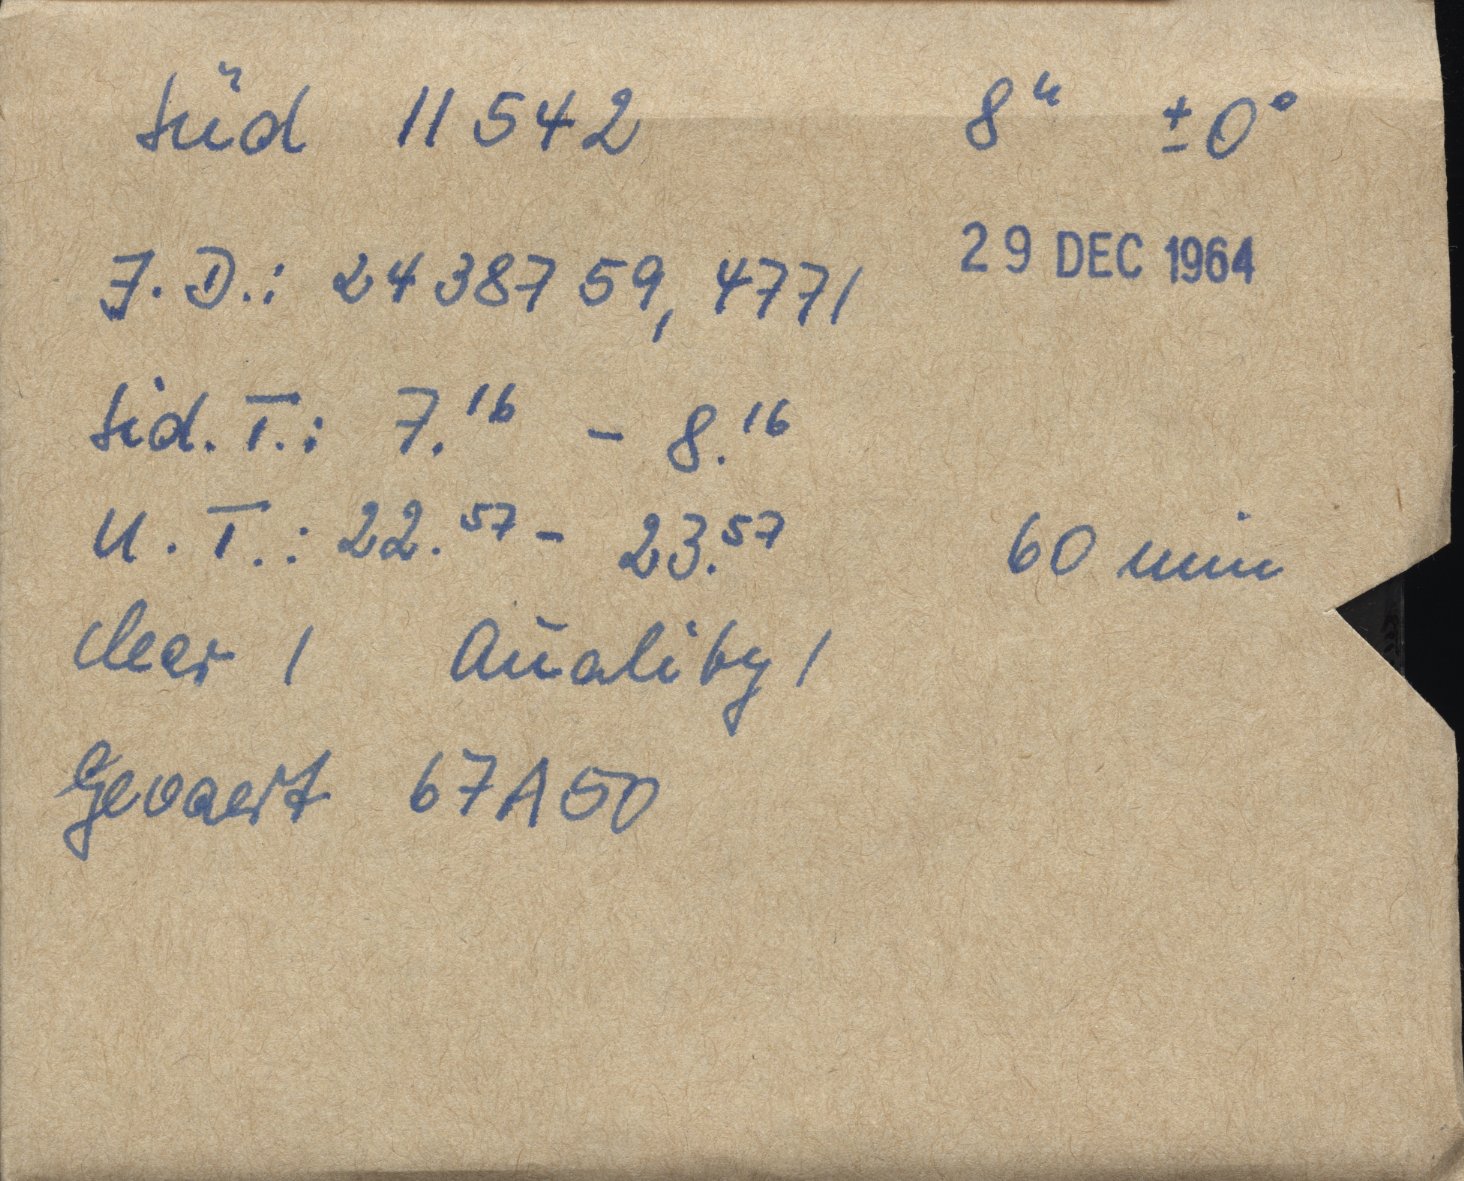 Süd 11542 8ʰ ±0°
29 DEC 1964
J.D.: 2438759,4771
Sid.T.: 7.16 - 8.16
U.T.: 22.57 - 23.57 60 min
clear 1 Quality 1
Gevaert 67A50